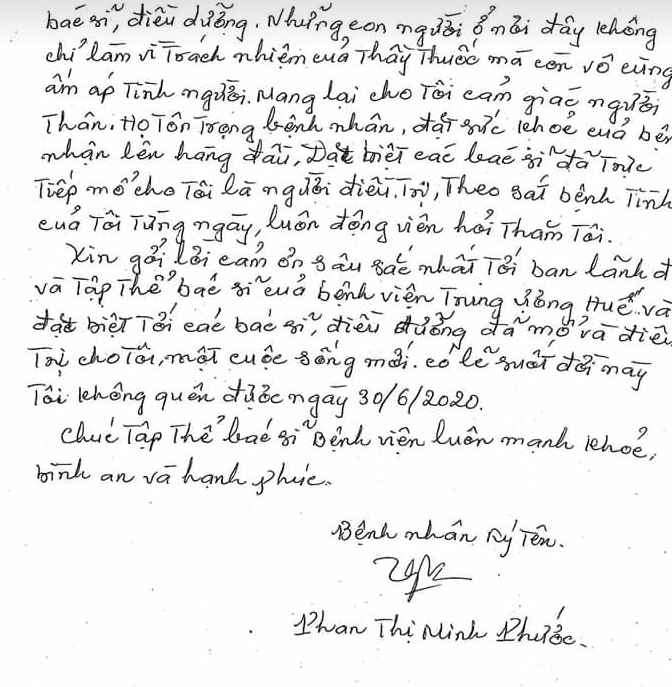 bác sĩ, điều dưỡng. Những con người ở nơi đây không
chỉ làm vì trách nhiệm của Thầy Thuốc mà còn vô cùng
ấm áp Tình người. Mang lại cho Tôi cảm giác người
Thân. Họ Tôn Trọng bệnh nhân, đặt sức khoẻ của bện
nhận lên hàng đầu, Đặt biệt các bác sĩ đã Trực
Tiếp mổ cho Tôi là người điều Trị, Theo sát bệnh Tình
của Tôi Từng ngày, luôn động viên hỏi Thăm Tôi.
Xin gởi lời cảm ơn sâu sắc nhất Tới ban lãnh đ
và Tập Thể bác sĩ của bệnh viện Trung Ương Huế và
đặt biệt Tới các bác sĩ, điều dưỡng đã mổ và điều
Trị cho Tôi, một cuộc sống mới. có lẽ suốt đời này
Tôi không quên được ngày 30/6/2020.
Chúc Tập Thể bác sĩ Bệnh viện luôn mạnh khoẻ,
bình an và hạnh phúc.
Bệnh nhân Ký Tên.
Phan Thị Minh Phước.